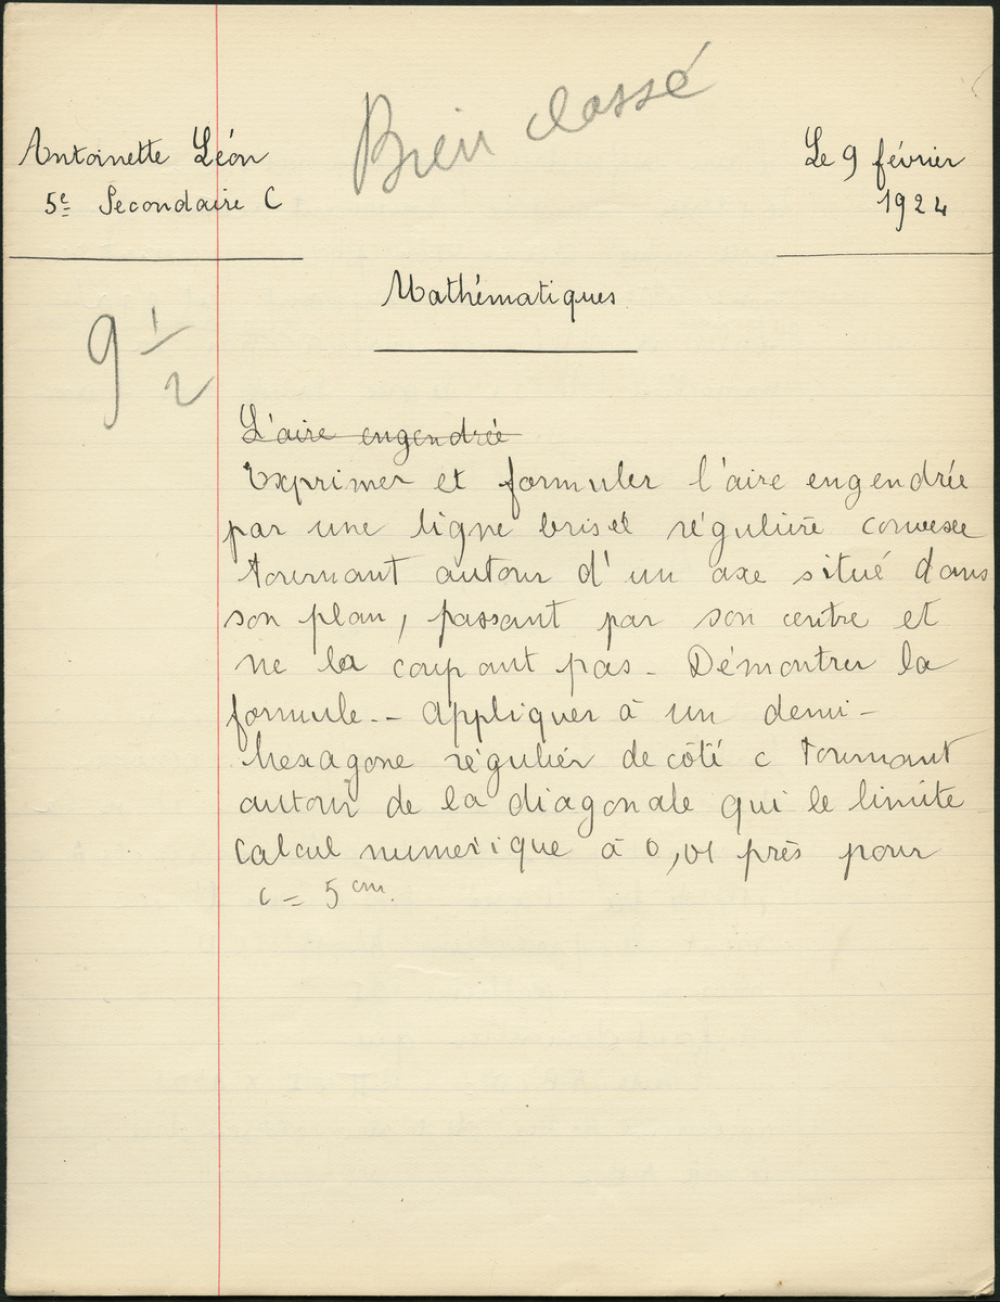 Bien classé
Antoinette Léon
Le 9 février
5e Secondaire C
1924
Mathématiques
9 1/2
L'aire engendrée
Exprimer et formuler l'aire engendrée
par une ligne brisée régulière convexe
tournant autour d'un axe situé dans
son plan, passant par son centre et
ne la coupant pas - Démontrer la
formule. - Appliquer à un demi-
hexagone régulier de côté c tournant
autour de la diagonale qui le limite
Calcul numérique à 0,01 près pour
c = 5 cm.